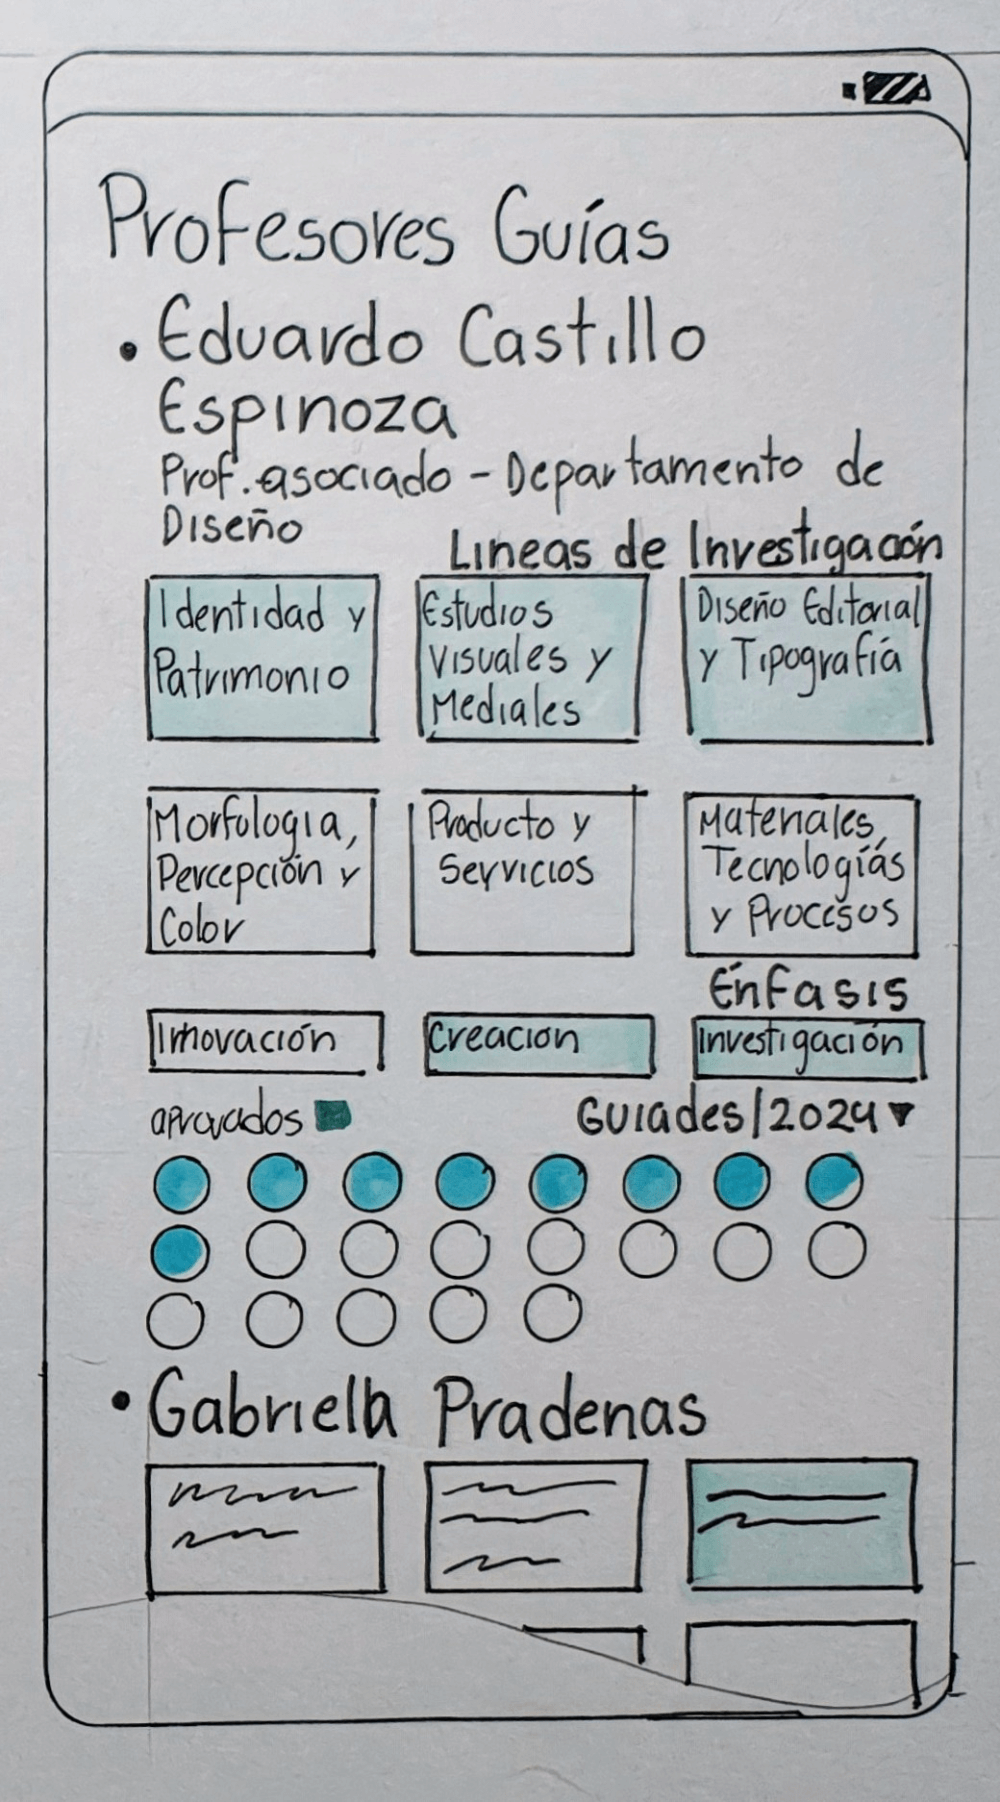 Profesores Guías
• Eduardo Castillo
Espinoza
Prof. asociado - Departamento de
Diseño
Lineas de Investigación
Identidad y
Patrimonio
Estudios
Visuales y
Mediales
Diseño Editorial
y Tipografía
Morfología,
Percepción y
Color
Producto y
Servicios
Materiales,
Tecnologías
y Procesos
Énfasis
Innovación
Creación
Investigación
aprovados
Guiades/2024 ▼
• Gabriella Pradenas